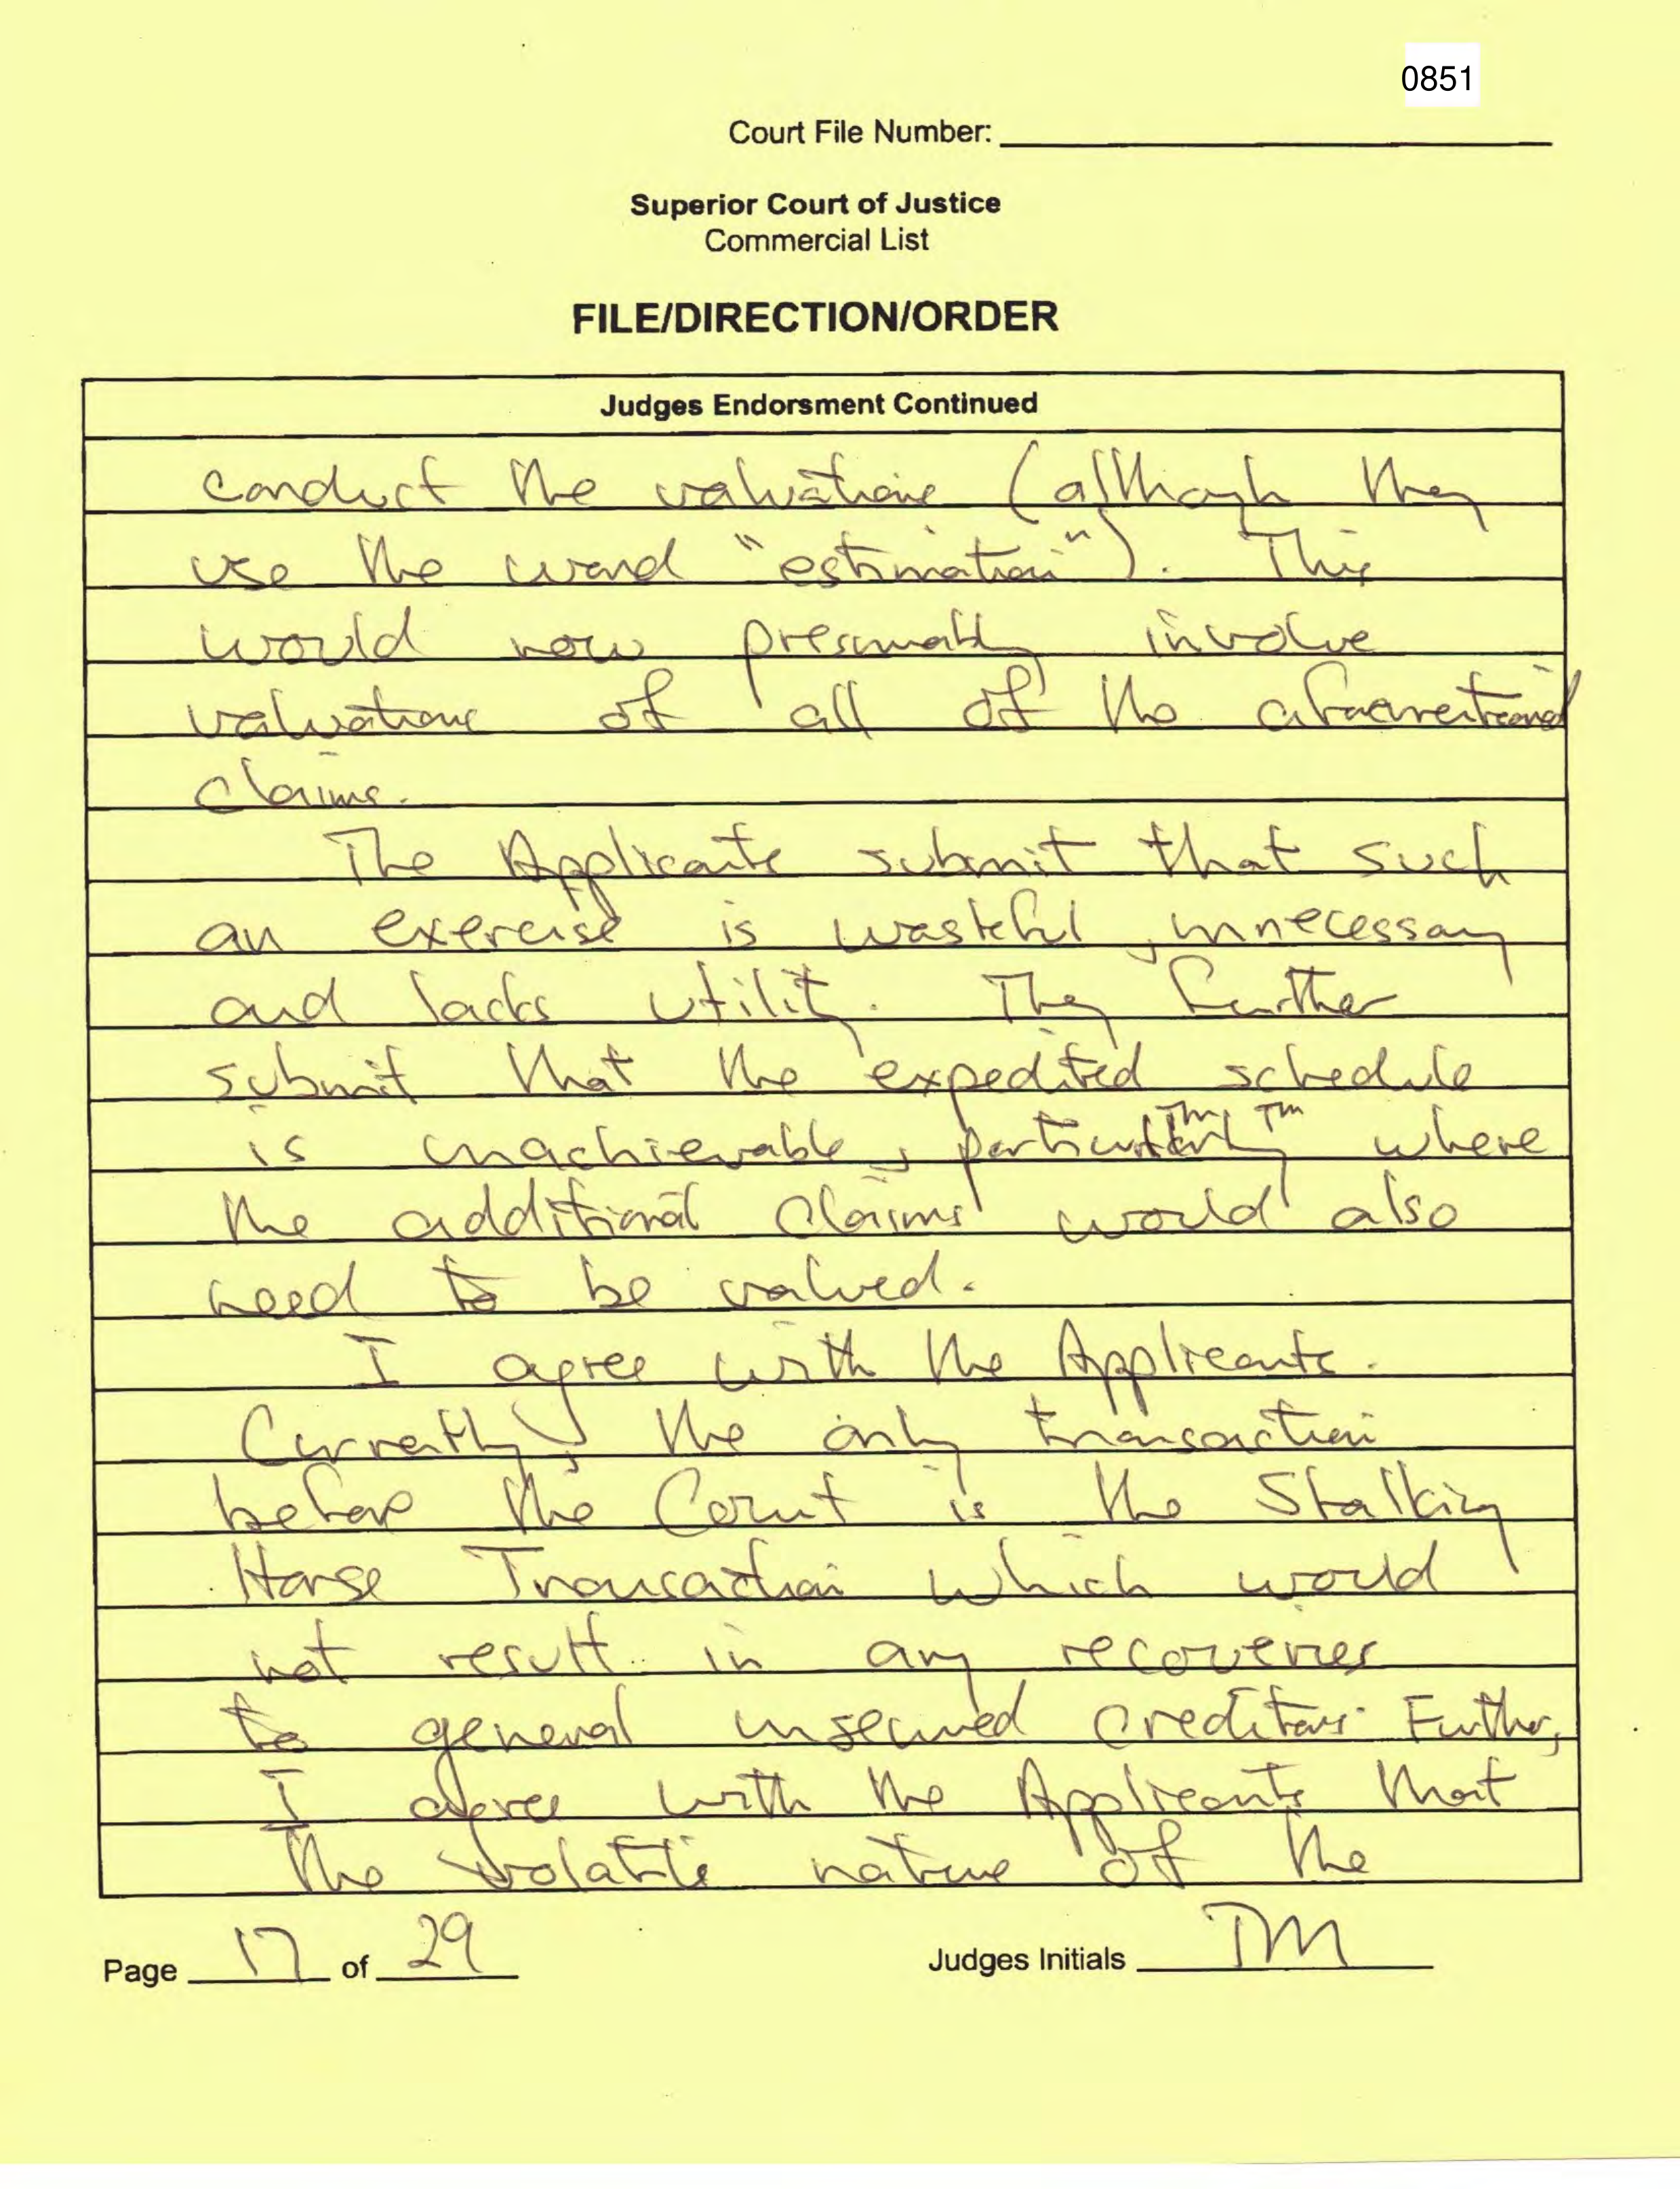 0851
Court File Number:
Superior Court of Justice
Commercial List
FILE/DIRECTION/ORDER
Judges Endorsment Continued
conduct the valuations (although they
use the word "estimation"). This
would now presumably involve
valuations of all of the aforementioned
claims.
The Applicants submit that such
an exercise is wasteful, unnecessary
and lacks utility. They further
submit that the expedited schedule
is unachievable, particularly TM TM where
the additional claims would also
need to be valued.
I agree with the Applicants.
Currently, the only transaction
before the Court is the Stalking
Horse Transaction which would
not result in any recoveries
to general unsecured creditors. Further,
I agree with the Applicants that
the volatile nature of the
Page 17 of 29
Judges Initials TM